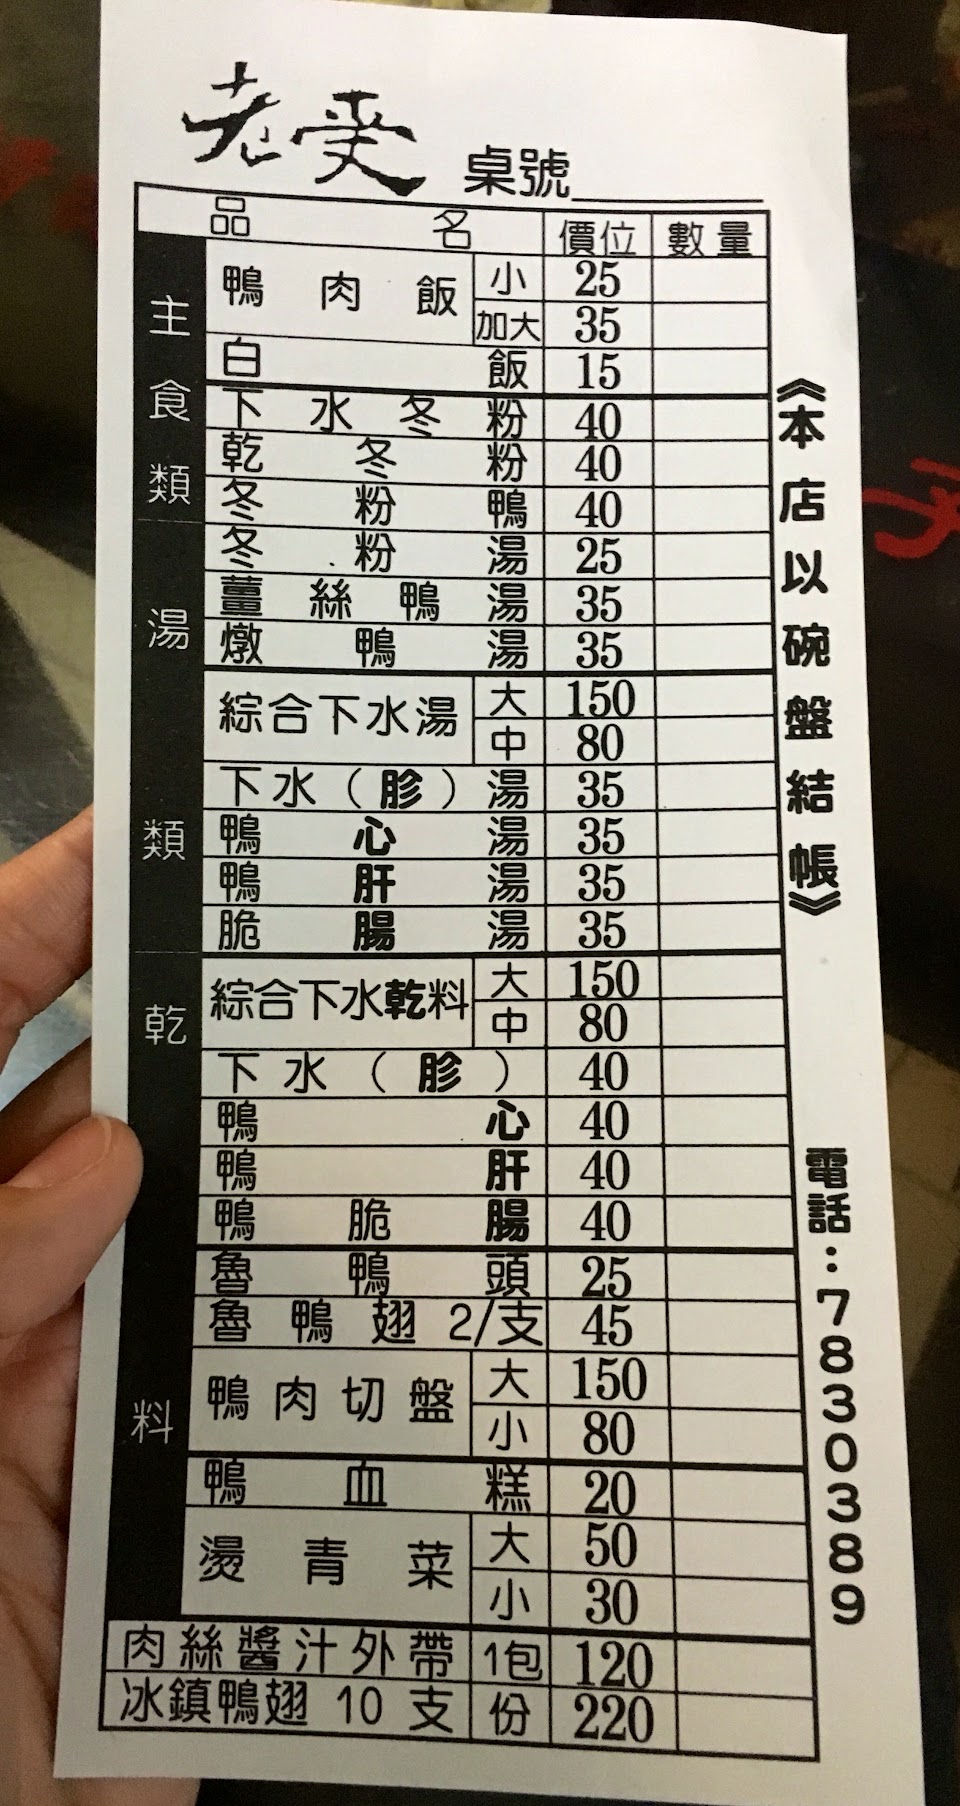 老受 桌號
品名 價位 數量
主食類
鴨肉飯 小 25
加大 35
白飯 15
下水冬粉 40
乾冬粉 40
冬粉鴨 40
湯類
冬粉湯 25
薑絲鴨湯 35
燉鴨湯 35
綜合下水湯 大 150
中 80
下水（胗）湯 35
鴨心湯 35
鴨肝湯 35
脆腸湯 35
乾料
綜合下水乾料 大 150
中 80
下水（胗） 40
鴨心 40
鴨肝 40
鴨脆腸 40
魯鴨頭 25
魯鴨翅2/支 45
鴨肉切盤 大 150
小 80
鴨血糕 20
燙青菜 大 50
小 30
肉絲醬汁外帶 1包 120
冰鎮鴨翅10支 份 220
《本店以碗盤結帳》
電話：7830389